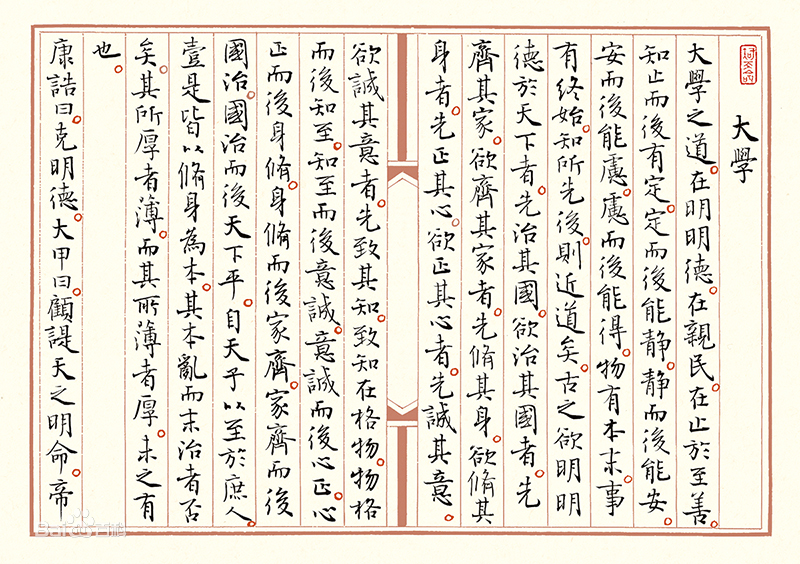 大學
大學之道。在明明德。在親民。在止於至善。
知止而後有定。定而後能静。静而後能安。
安而後能慮。慮而後能得。物有本末。事
有終始。知所先後。則近道矣。古之欲明明
德於天下者。先治其國。欲治其國者。先
齊其家。欲齊其家者。先脩其身。欲脩其
身者。先正其心。欲正其心者。先誠其意。
欲誠其意者。先致其知。致知在格物。物格
而後知至。知至而後意誠。意誠而後心正。心
正而後身脩。身脩而後家齊。家齊而後
國治。國治而後天下平。自天子以至於庶人。
壹是皆以脩身為本。其本亂而末治者否
矣。其所厚者薄。而其所薄者厚。未之有
也。
康誥曰。克明德。大甲曰。顧諟天之明命。帝
Baidu百科